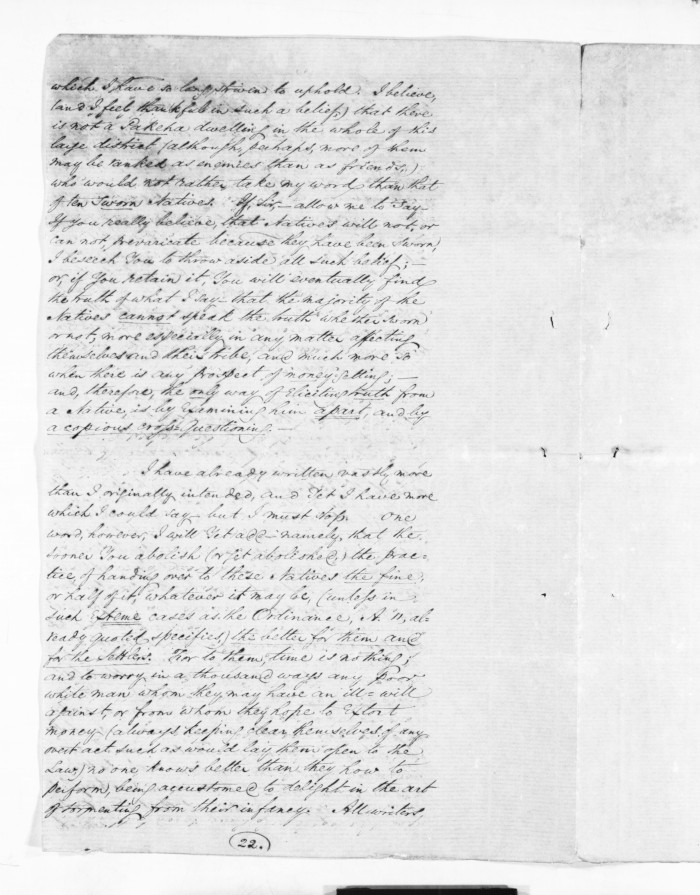 which I have so long striven to uphold. I believe,
(and I feel thankful in such a belief,) that there
is not a Pakeha dwelling in the whole of this
large district (although, perhaps, more of them
may be ranked as enemies than as friends,)
who would not rather take my word than that
of ten Sworn Natives. If Sir,— allow me to say—
If You really believe, that Natives will not, or
can not, prevaricate because they have been Sworn,
I beseech You to throw aside all such belief;—
or, if You retain it, You will eventually find
the truth of what I say—that, the majority of the
Natives cannot speak the truth whether Sworn
or not; more especially in any matter affecting
themselves and their tribe, and much more so
when there is any prospect of money-getting;—
and, therefore, the only way of eliciting truth from
a Native, is by Examining him apart, and by
a copious cross-Questioning.—
I have already written vastly more
than I originally intended, and Yet I have more
which I could say—but I must stop. One
word, however, I will Yet add—namely, that the
sooner You abolish (or get abolished,) the prac=
tice, of handing over to these Natives the fine,
or half of it, whatever it may be, (unless in
such cases as the Ordinance, al=
ready quoted, specifies,) the better for them and
for the Settlers. For to them, time is nothing;
and to worry in a thousand ways any poor
white man whom they may have an ill=will
against, or from whom they hope to Extort
money—(always keeping clear, themselves, of any
overt act such as would lay them open to the
Law,) no one knows better than they how to
perform, being accustomed to delight in the art
of tormenting from their infancy. All writers,
22.